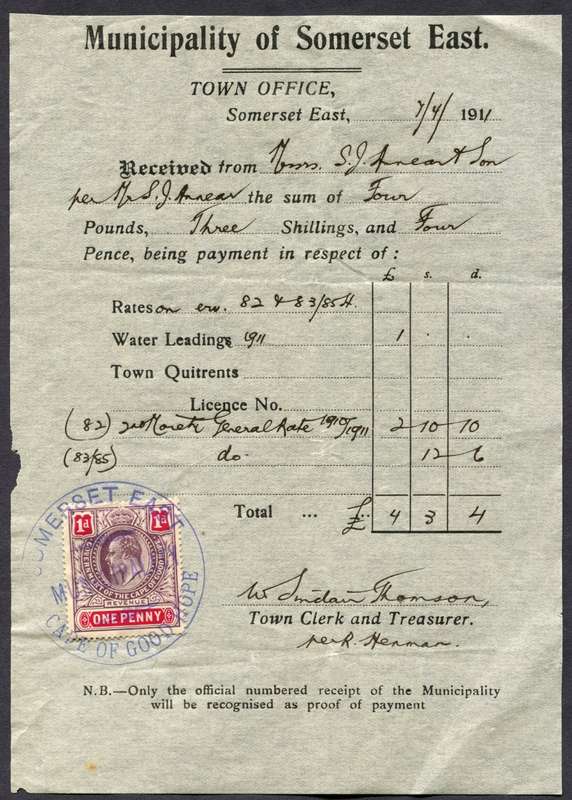 Municipality of Somerset East.
TOWN OFFICE,
Somerset East, 7/4/ 1911
Received from Messrs. S. J. Annear & Son
per Mr S. J. Annear the sum of Four
Pounds, Three Shillings, and Four
Pence, being payment in respect of :
£ s. d.
Rates on erv. 82 & 83/85 H.
Water Leadings 1911 1 . .
Town Quitrents
Licence No.
(82) General Rate 1910/1911 2 10 10
(83/85) do. 12 6
Total ... £ 4 3 4
SOMERSET EAST
CAPE OF GOOD HOPE
1d 1d
GOVERNMENT OF THE CAPE OF GOOD HOPE
REVENUE
ONE PENNY
W Sinclair Thomson,
Town Clerk and Treasurer.
per R. Henman.
N.B.—Only the official numbered receipt of the Municipality
will be recognised as proof of payment